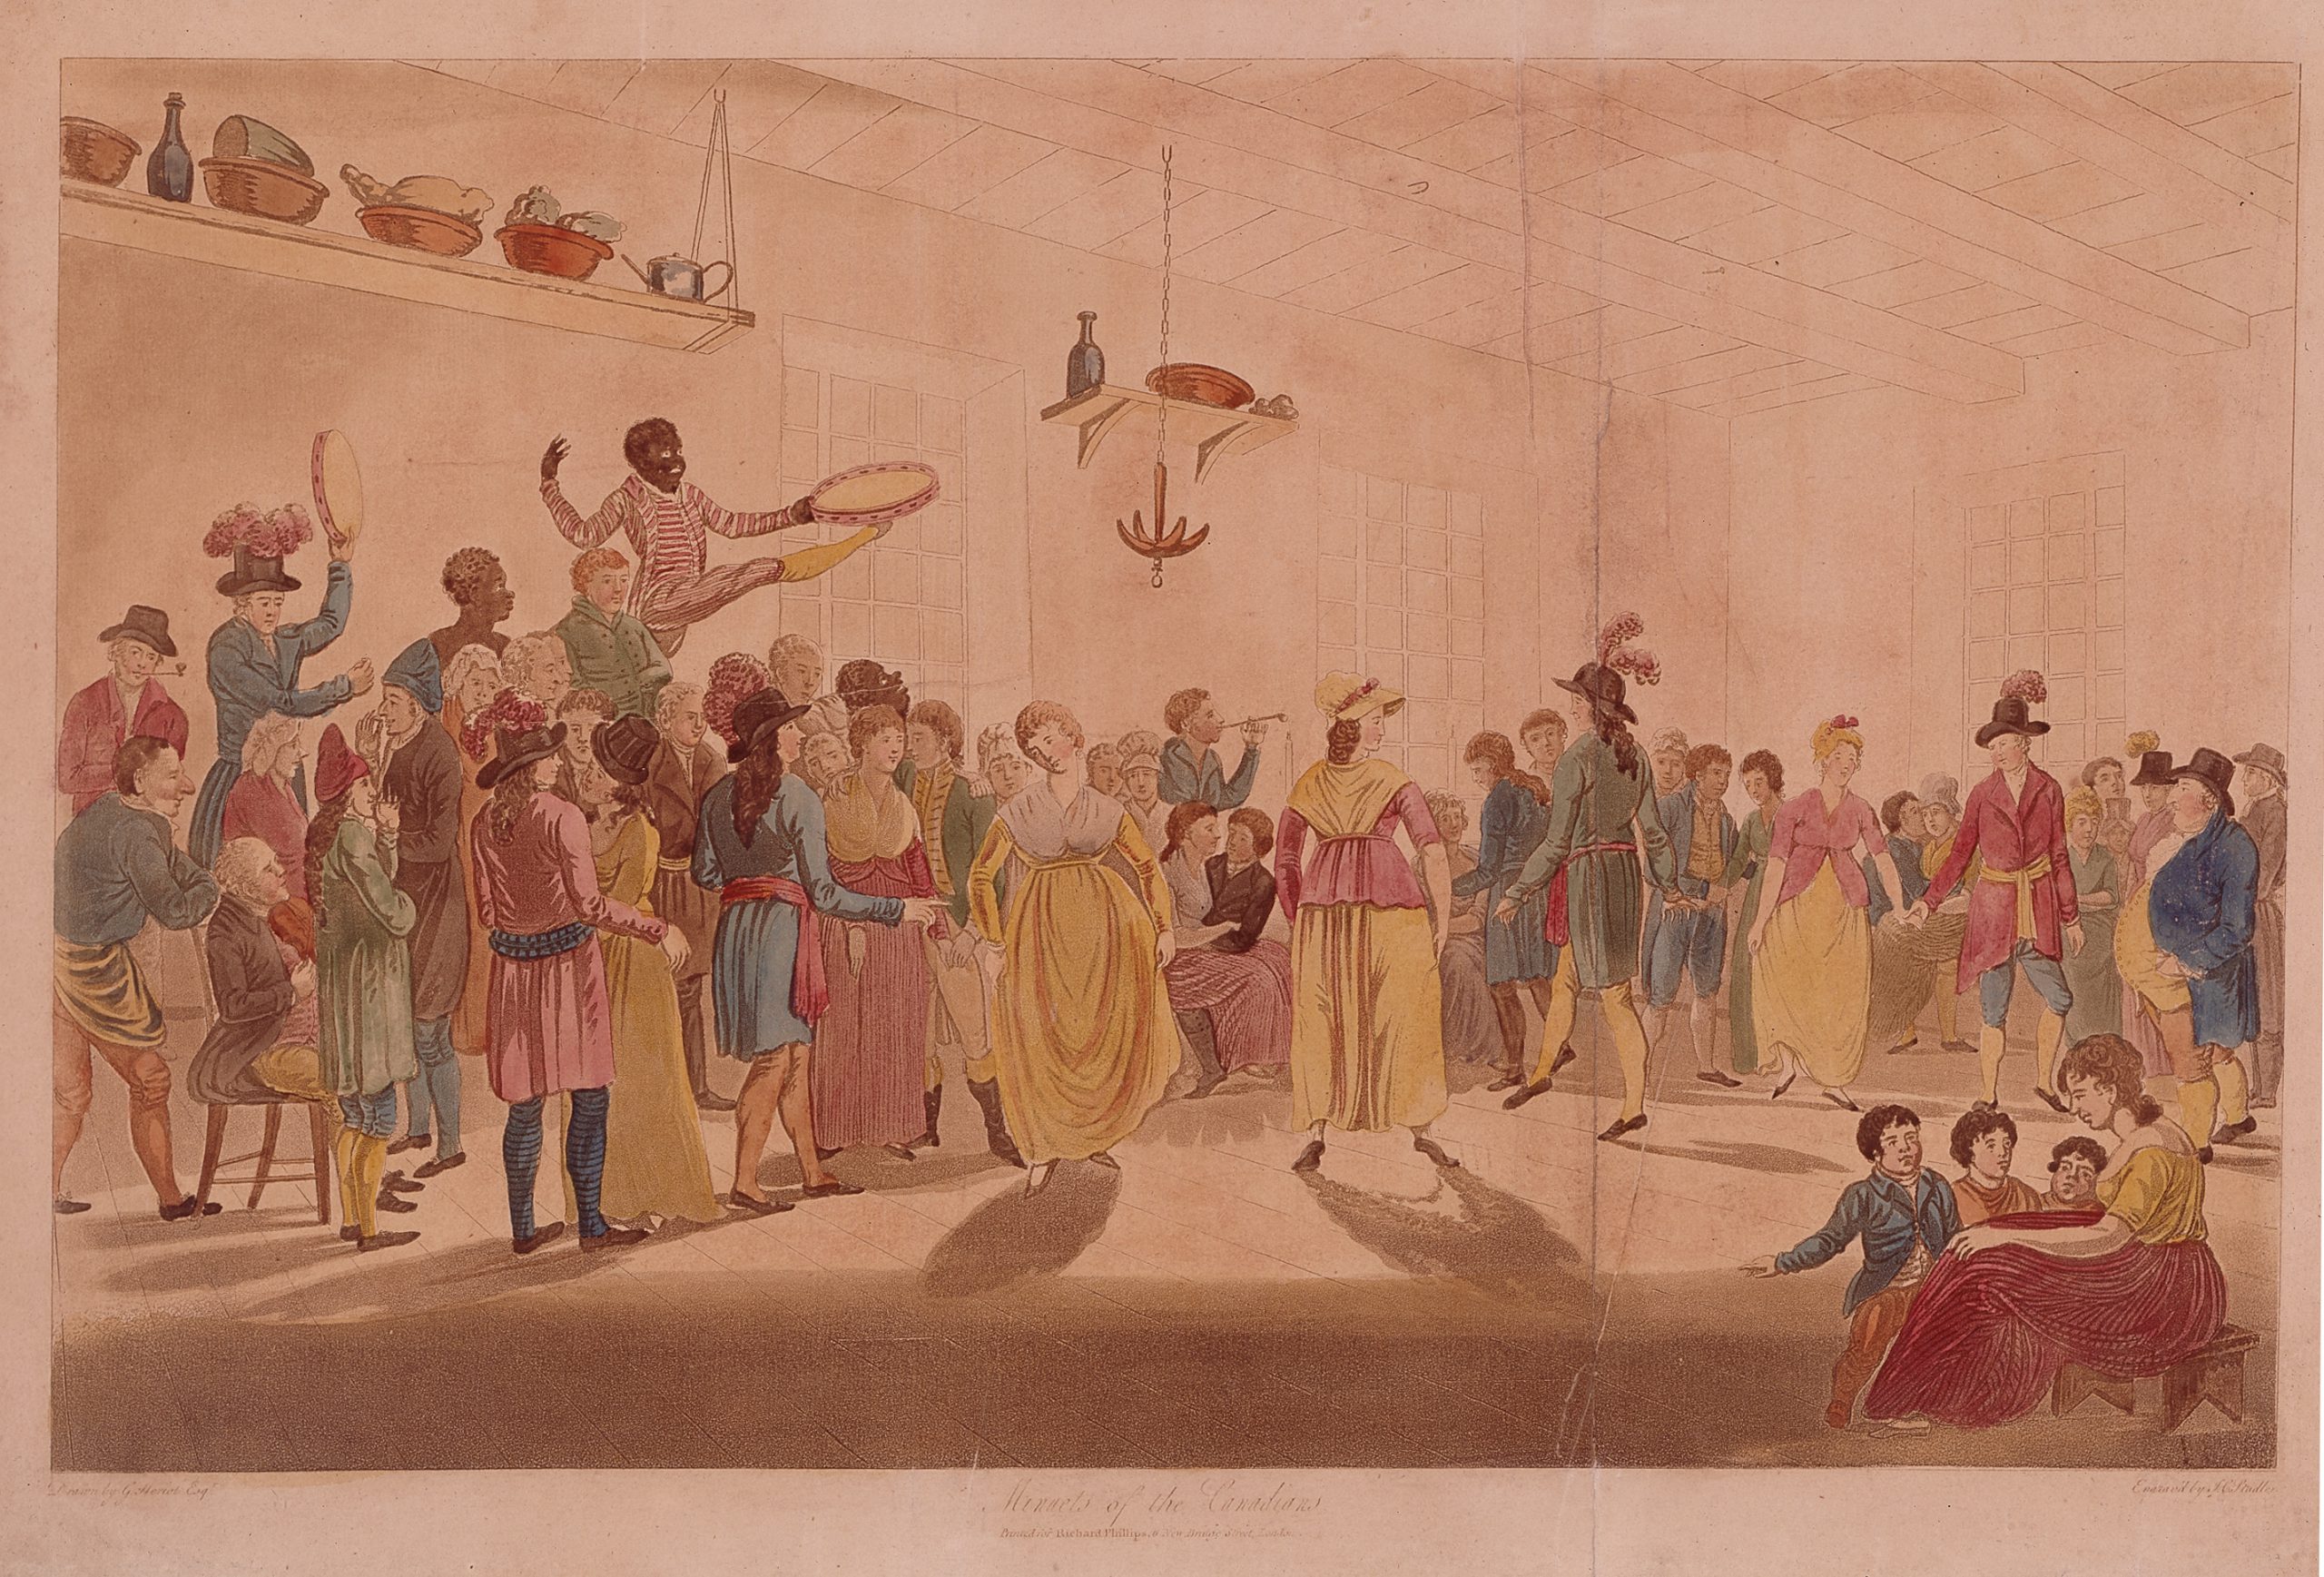 Drawn by G. Heriot Esqr.
Minuets of the Canadians
Engraved by J.C. Stadler
Printed for Richard Phillips, 6 New Bridge Street, London.